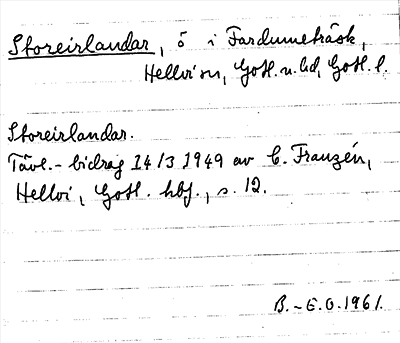 Storeirlandar, ö i Fardumeträsk,
Hellvi sn, Gotl. n. hd, Gotl. l.
Storeirlandar.
Tävl.-bidrag 14/3 1949 av C. Franzén,
Hellvi, Gotl. hbf., s. 12.
B.-E.O. 1961.